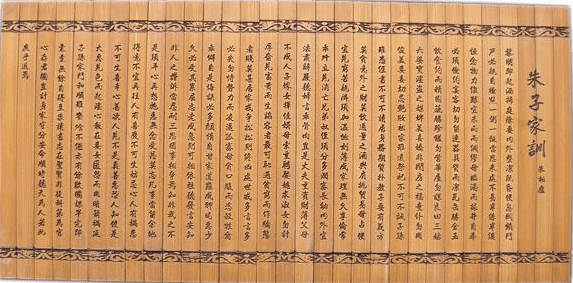 朱子家訓
朱柏廬
黎明即起洒掃庭除要內外整潔既昏便息關鎖門
戶必親自檢點一粥一飯當思來處不易半絲半縷
恒念物力維艱宜未雨而綢繆毋臨渴而掘井自奉
必須儉約宴客切勿留連器具質而潔瓦缶勝金玉
飲食約而精園蔬勝珍饈勿營華屋勿謀良田三姑
六婆實淫盜之媒婢美妾嬌非閨房之福童僕勿用
俊美妻妾切忌艷妝祖宗雖遠祭祀不可不誠子孫
雖愚經書不可不讀居身務期質樸教子要有義方
莫貪意外之財莫飲過量之酒與肩挑貿易毋占便
宜見貧苦親鄰須加溫恤刻薄成家理無久享倫常
乖舛立見消亡兄弟叔侄須分多潤寡長幼內外宜
法肅辭嚴聽婦言乖骨肉豈是丈夫重資財薄父母
不成人子嫁女擇佳婿毋索重聘娶媳求淑女勿計
厚奩見富貴而生諂容者最可恥遇貧窮而作驕態
者賤莫甚居家戒爭訟訟則終凶處世戒多言言多
必失勿恃勢力而凌逼孤寡毋貪口腹而恣殺牲禽
乖僻自是悔誤必多頹惰自甘家道難成狎昵惡少
久必受其累屈志老成急則可相依輕聽發言安知
非人之譖訴當忍耐三思因事相爭焉知非我之不
是須平心再想施惠無念受恩莫忘凡事當留餘地
得意不宜再往人有喜慶不可生妒忌心人有禍患
不可生喜幸心善欲人見不是真善惡恐人知便是
大惡見色而起淫心報在妻女匿怨而用暗箭禍延
子孫家門和順雖饔飧不繼亦有餘歡國課早完即
囊橐無餘自得至樂讀書志在聖賢非徒科第為官
心存君國豈計身家守分安命順時聽天為人若此
庶乎近焉